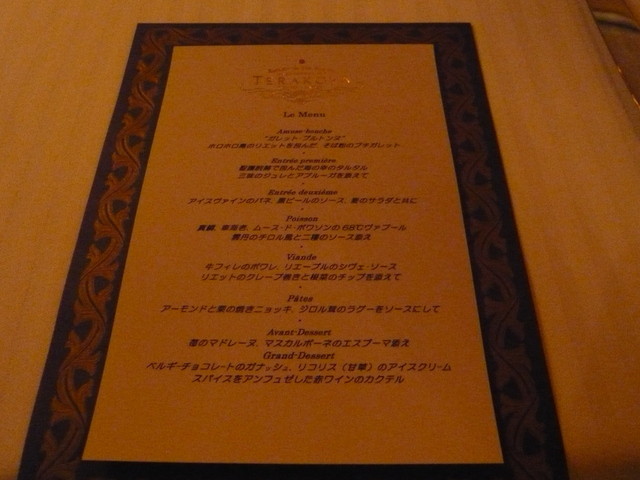 Le Menu
Amuse-bouche
"ガレット・ブルトンヌ"
ホロホロ鳥のリエットを挟んだ、そば粉のプチガレット
Entrée première
三味のジュレとアブルーガを添えて
Entrée deuxième
アイスヴァインのパネ、黒ビールのソース、のサラダと共に
Poisson
真鯛、ムース・ド・ポワソンの68℃ヴァプール
雲丹のチロル風と二種のソース添え
Viande
牛フィレのポワレ、リエーブルのシヴェ・ソース
リエットのクレープ巻きと根菜のチップを添えて
Pâtes
アーモンドと栗の焼きニョッキ、ジロル茸のラグーをソースにして
Avant-Dessert
のマドレーヌ、マスカルポーネのエスプーマ添え
Grand-Dessert
ベルギーチョコレートのガナッシュ、リコリス（甘草）のアイスクリーム
スパイスをアンフュゼした赤ワインのカクテル